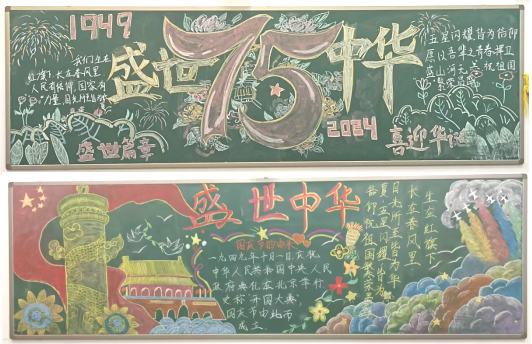 1949
盛世
75
中华
2024
我们生在
红旗下,长在春风里
人民有信仰,国家有
力量,目光所至皆
盛世篇章
五星闪耀皆为信仰
愿以吾辈之青春捍卫
盛世
喜迎华诞
盛世中华
国庆节的由来
一九四九年十月一日,庆祝
中华人民共和国中央人民
政府典礼在北京举行
史称"开国大典"
国庆节由此而
成立
生在红旗下
长在春风里
目光所至皆为华
夏,五星闪耀皆为
信仰,祝祖国繁荣